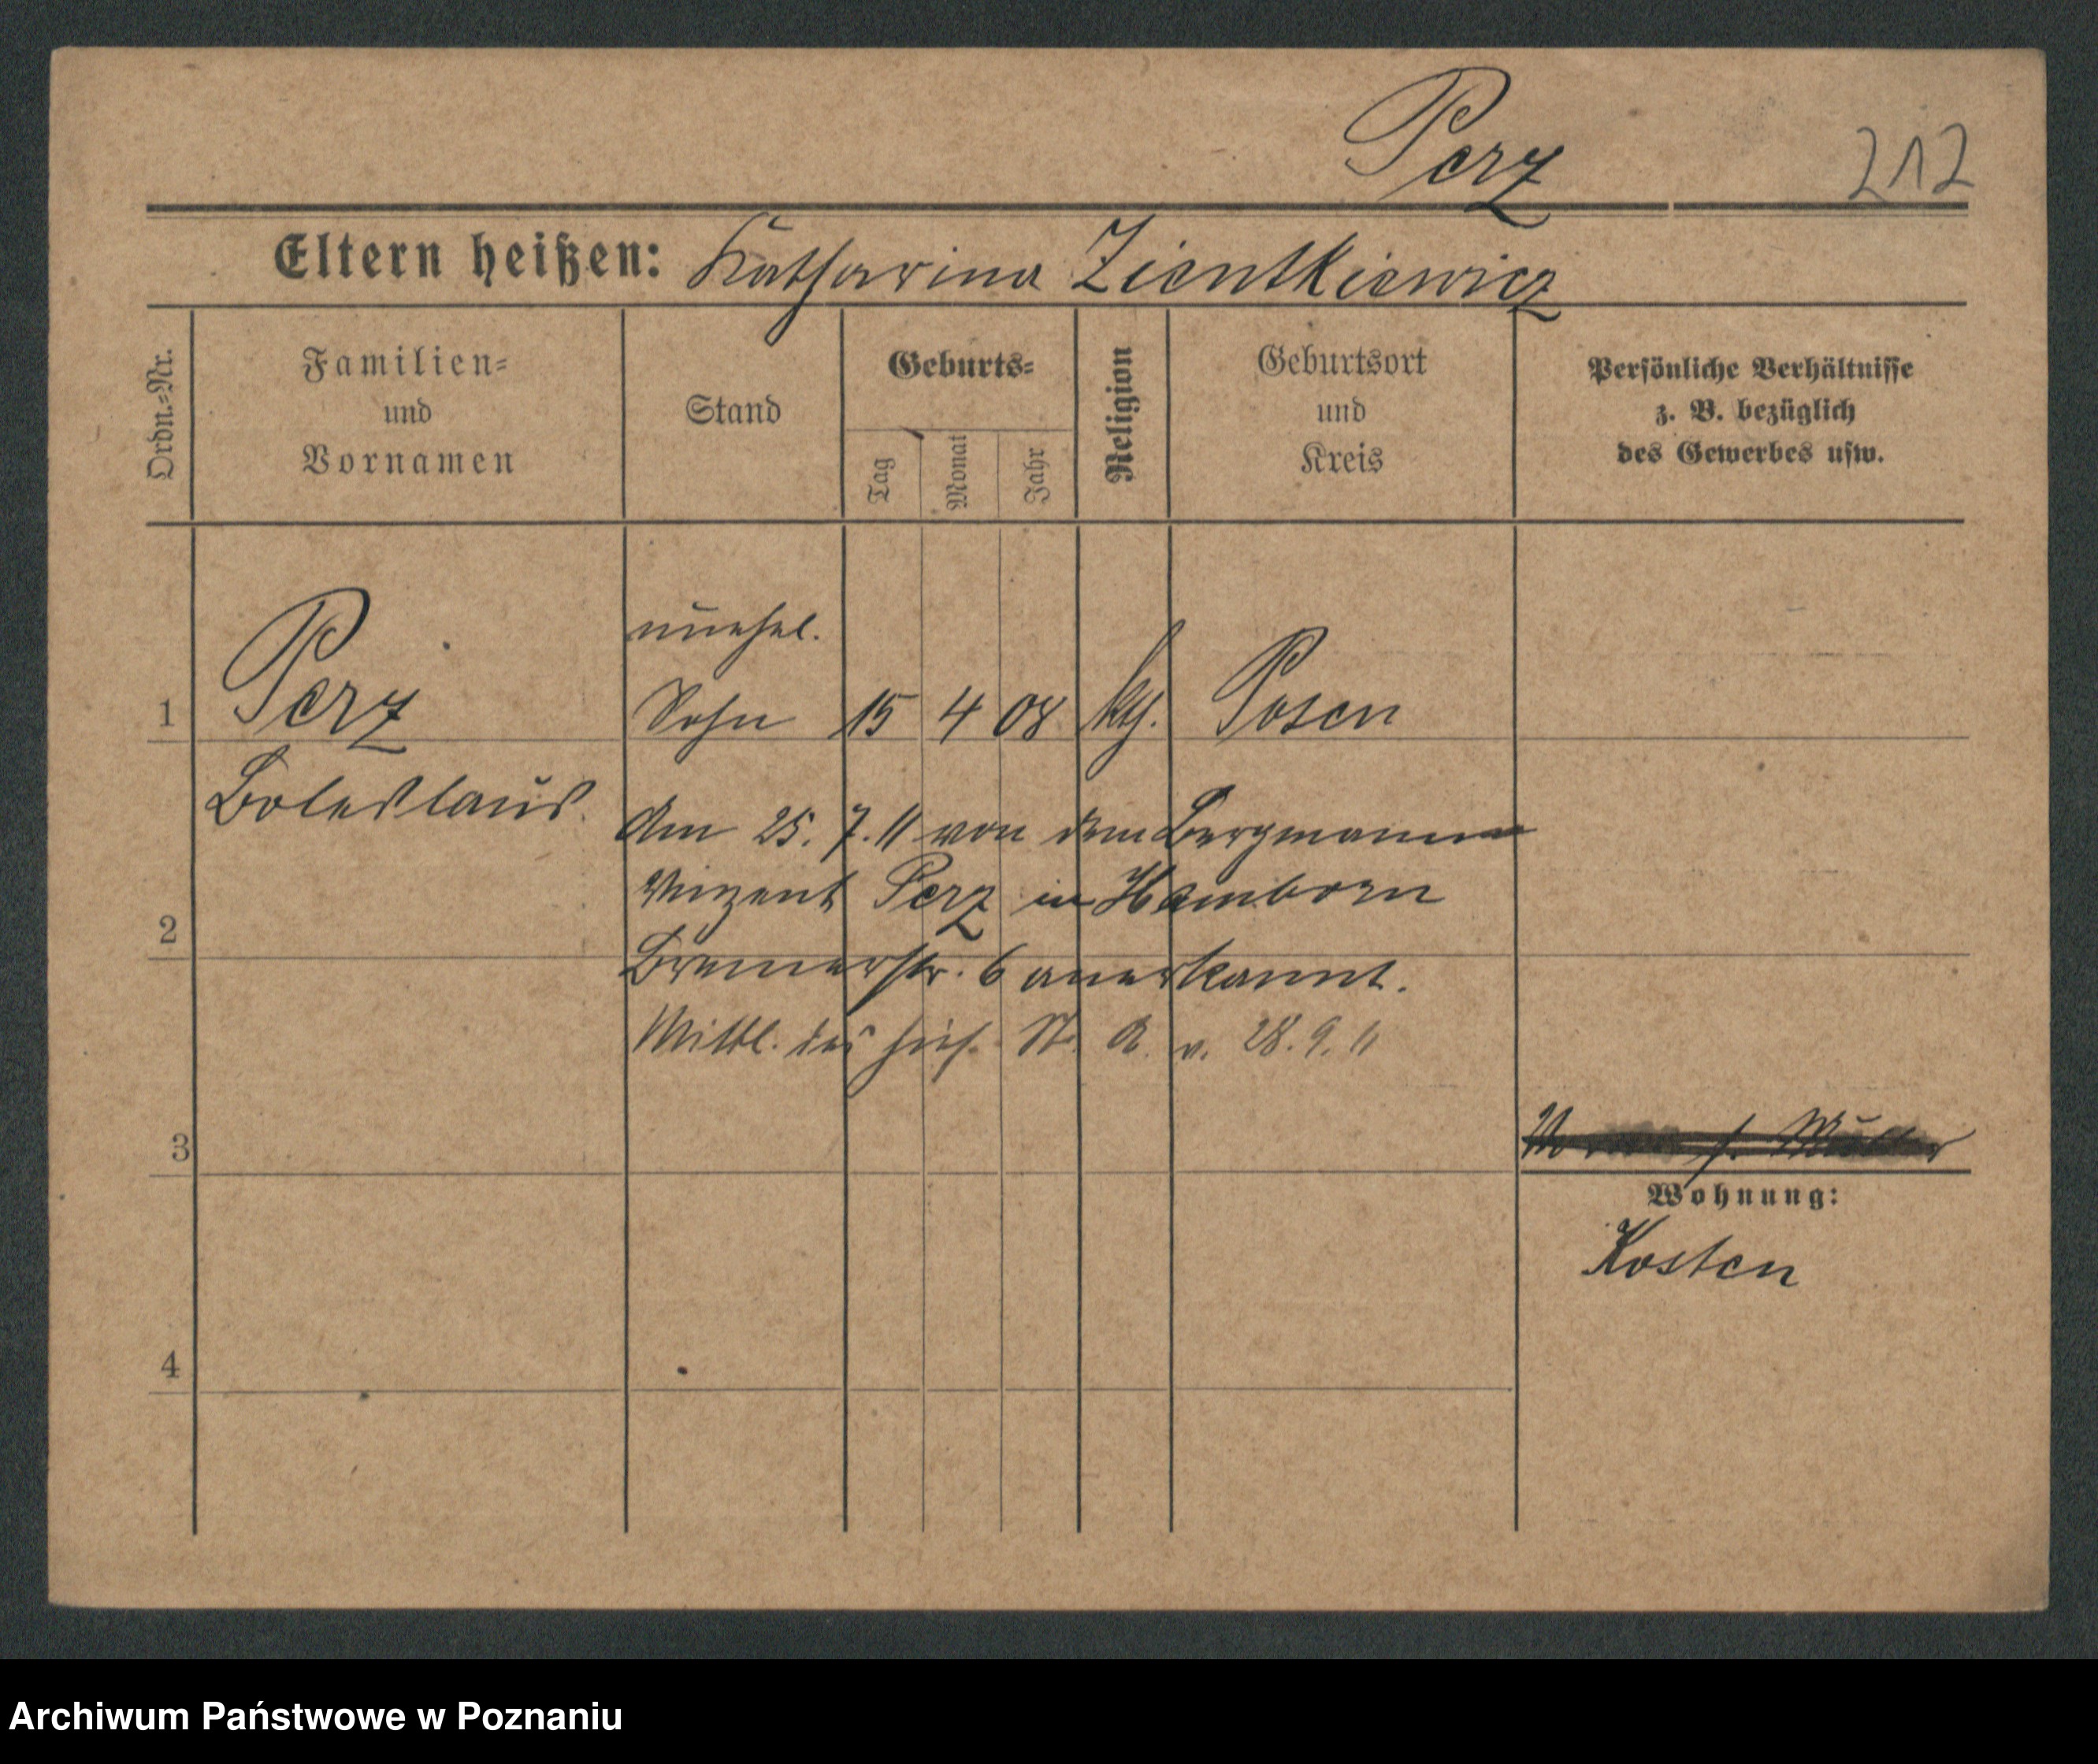 Perz 212
Eltern heißen: Katharina Zientkiewicz
Ordn.-Nr.
Familien-
und
Vornamen
Stand
Geburts-
Tag
Monat
Jahr
Religion
Geburtsort
und
Kreis
Persönliche Verhältnisse
z. B. bezüglich
des Gewerbes usw.
unehel.
1 Perz Sohn 15 4 08 kth. Posen
Boleslaus.
Am 25. 7. 11 von dem Bergmann
Vinzent Perz in Hamborn
2
Bremerstr. 6 anerkannt.
Mittl. des hies. St. A. v. 28. 9. 11
3
f. Mutter
Wohnung:
Kosten
4
Archiwum Państwowe w Poznaniu